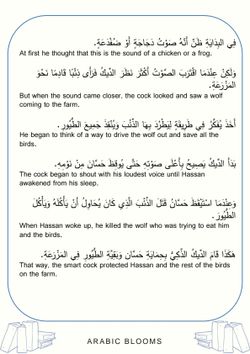 فِي الْبِدَايَةِ ظَنَّ أَنَّهُ صَوْتُ دَجَاجَةٍ أَوْ ضُفْدَعَةٍ.
At first he thought that this is the sound of a chicken or a frog.
وَلَكِنْ عِنْدَمَا اقْتَرَبَ الصَّوْتُ أَكْثَرَ نَظَرَ الدِّيكُ فَرَأَى ذِئْبًا قَادِمًا نَحْوَ
الْمَزْرَعَةِ.
But when the sound came closer, the cock looked and saw a wolf
coming to the farm.
أَخَذَ يُفَكِّرُ فِي طَرِيقَةٍ لِيَطْرُدَ بِهَا الذِّئْبَ وَيُنْقِذَ جَمِيعَ الطُّيُورِ.
He began to think of a way to drive the wolf out and save all the
birds.
بَدَأَ الدِّيكُ يَصِيحُ بِأَعْلَى صَوْتِهِ حَتَّى يُوقِظَ حَسَّانَ مِنْ نَوْمِهِ.
The cock began to shout with his loudest voice until Hassan
awakened from his sleep.
وَعِنْدَمَا اسْتَيْقَظَ حَسَّانُ قَتَلَ الذِّئْبَ الَّذِي كَانَ يُحَاوِلُ أَنْ يَأْكُلَهُ وَيَأْكُلَ
الطُّيُورَ.
When Hassan woke up, he killed the wolf who was trying to eat him
and the birds.
هَكَذَا قَامَ الدِّيكُ الذَّكِيُّ بِحِمَايَةِ حَسَّانَ وَبَقِيَّةِ الطُّيُورِ فِي الْمَزْرَعَةِ.
That way, the smart cock protected Hassan and the rest of the birds
on the farm.
ARABIC BLOOMS